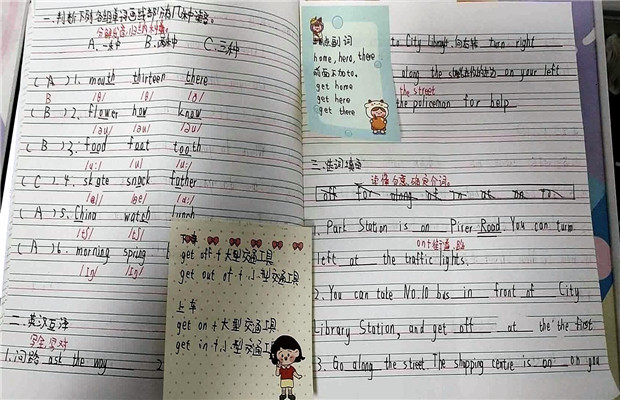 一、判断下列各组单词画线部分有几种读音。
A.一种 B.两种 C.三种
(A)1. mouth thirteen there
B /θ/ /θ/ /ð/
(B)2. flower how know
/aʊ/ /aʊ/ /əʊ/
(B)3. food foot tooth
/u:/ /ʊ/ /u:/
(C)4. skate snack father
(A)5. China watch lunch
/tʃ/ /tʃ/
(A)6. morning spring
/Iŋ/ /Iŋ/
二、英汉互译
1.问路 ask the way 2
下车
get off + 大型交通工具
get out of + 小型交通工具
上车
get on + 大型交通工具
get in + 小型交通工具
地点副词
home, here, there
前面不加to.
get home
get here
get there
to City Library,向右转 turn right
along the street在你的左边 on your left
the street
the policeman for help
三、选词填空
读懂句意,确定介词。
off for along at on to
1. Park Station is on Piser Road. You can turn
on+街道、路
left at the traffic lights.
2. You can take No.10 bus in front of City
Library Station, and get off at the the first
3. Go along the street. The shopping centre is on on you